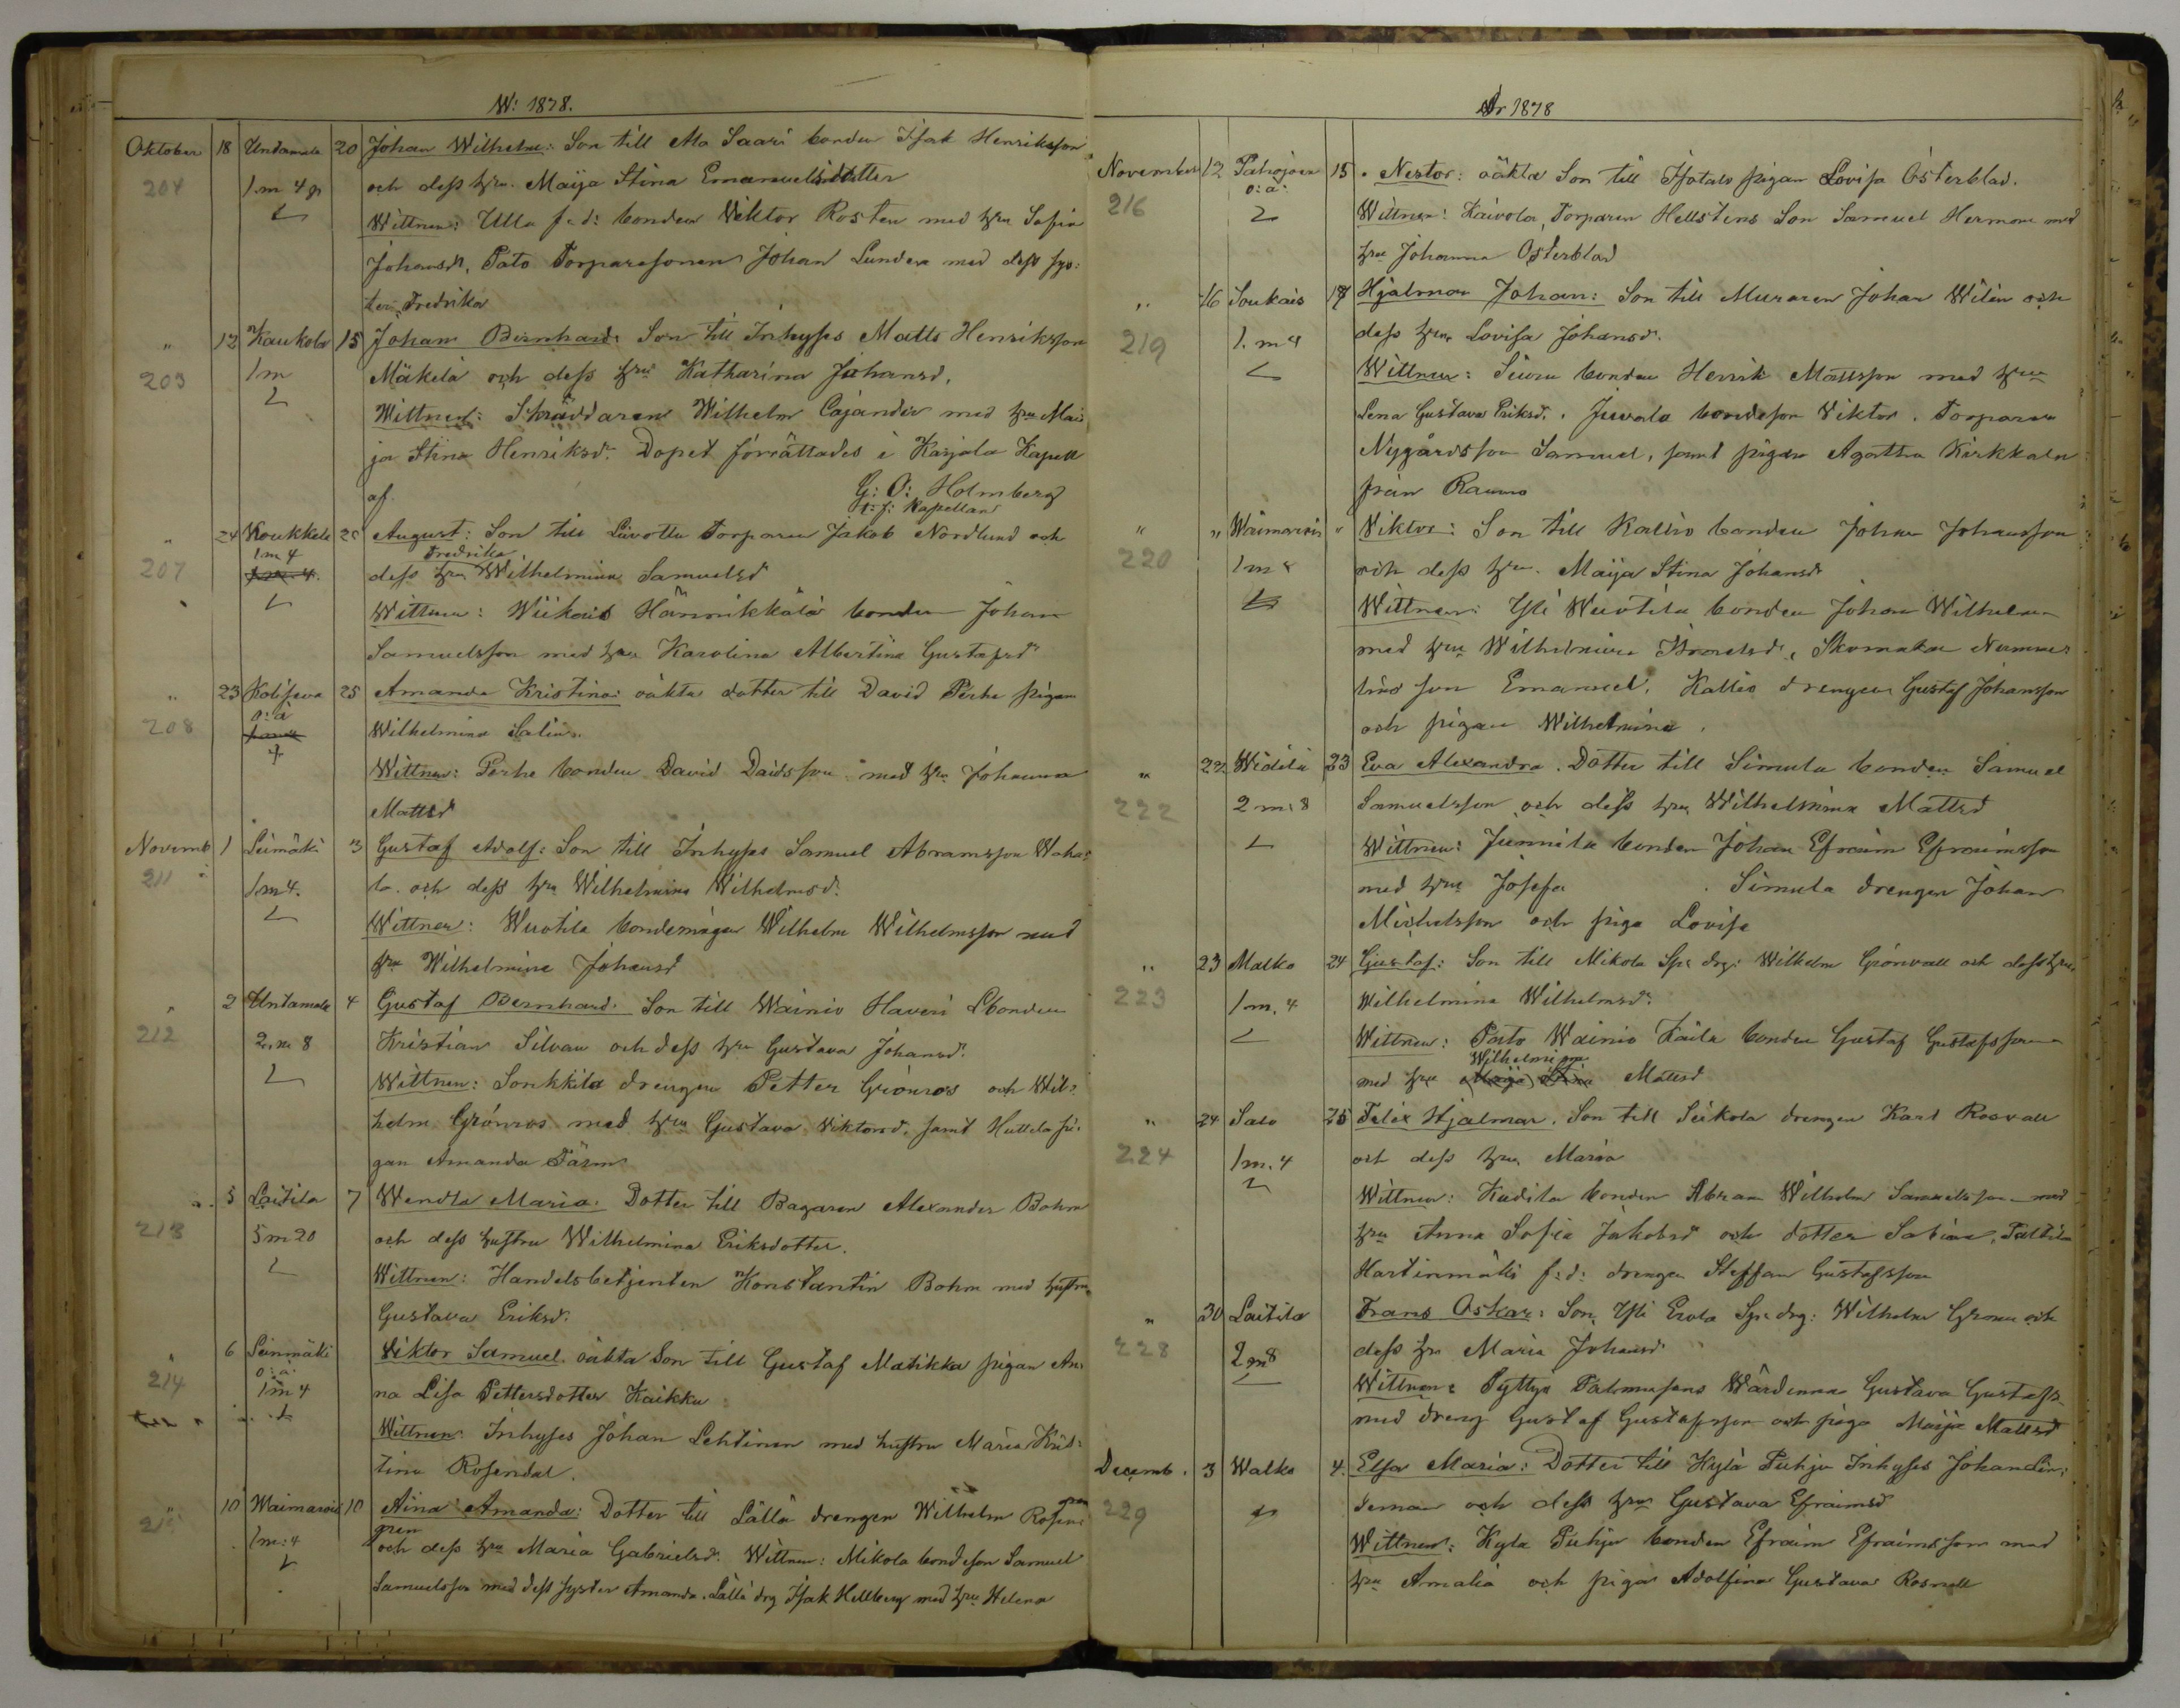 År 1878.
Oktober 18 Untamala 20 Johan Wilhelm: Son till Ala Saari bonden Isak Henriksson
204 1 m 4 p och dess hru. Maija Stina Emanuelsdotter
Wittnen: Ulla f.d. bonden Viktor Rosten med hru Sofia
Johansdr, Pato Torparesonen Johan Lunden med dess sys:
ter Fredrika
" 12 Kaukola 15 Johan Bernhard: Son till Inhyses Matts Henriksson
203 1 m Mäkelä och dess hru Katharina Johansd.
Wittnen: Skräddaren Wilhelm Cajander med hru Mai
ja Stina Henriksdr. Dopet förrättades i Karjala Kapell
af. G: O: Holmberg
t: f: Kapellan
" 24 Koukkela 25 August: Son till Torparen Jakob Nordlund och
207 1 m 4 dess hru Fredrika Wilhelmina Samuelsd
Wittnen: Wiikais Hännikkälä bonden Johan
Samuelsson med hru Karolina Albertina Gustafsdr
" 23 Kolifeva 25 Amanda Kristina: oäkta dotter till David Perhe pigan
208 o: ä Wilhelmina Salin
Wittnen: Perhe bonden David Davidsson med hru Johanna
Mattsd
Novemb. 1 Leimäki 3 Gustaf Adolf: Son till Inhyses Samuel Abramsson Waha:
211 1 m 4. la. och dess hru Wilhelmina Wilhelmsd.
Wittnen: Wuotila bondemågen Wilhelm Wilhelmsson med
hru Wilhelmina Johansd
" 2 Untamala 4 Gustaf Bernhard. Son till Wainio Haveri Lbonden
212 2 m 8 Kristian Silvan och dess hru Gustava Johansd.
Wittnen: Sonkkila drengen Petter Grönros och Wil:
helm Grönros med hru Gustava Viktorsd. samt Huttila pi:
gan Amanda Färm
" 5 Laitila 7 Wendla Maria. Dotter till Bagaren Alexander Bohm
213 5 m 20 och dess hustru Wilhelmina Eriksdotter.
Wittnen: Handelsbetjenten Konstantin Bohm med hustru
Gustava Eriksd.
" 6 Leinmäki Viktor Samuel. oäkta Son till Gustaf Matikka pigan An:
214 o: ä 1 m 4 na Lisa Pettersdotter Kaikku
Wittnen: Inhyses Johan Lehtinen med hustru Maria Kris:
tina Rosendal.
" 10 Waimaro 10 Aina Amanda: Dotter till Lällä drengen Wilhelm Rosen:
gren
1 m: 4 och dess hru Maria Gabrielsd. Wittnen: Mikola bondeson Samuel
Samuelsson med dess syster Amanda. Lällä drg Isak Hellberg med hru Helena
År 1878
November 12 Pahojoen 15. Nestor: oäkta Son till Isotalo pigan Lovisa Österblad.
216 o: ä: Wittnen: Kaivola Torparen Hellstens Son Samuel Herman med
hru Johanna Österblad
" 16 Soukais 17 Hjalmar Johan: Son till Muraren Johan Wilén och
219 1. m 4 dess hru Lovisa Johansd.
Wittnen: bonden Henrik Mattsson med hru
Lena Gustava Eriksd.. Juvala bondeson Viktor. Torparen
Nygårdsson Samuel, samt pigan Agatha Kirkkala
från Raumo
" " Waimaro " Viktor: Son till Kallio bonden Johan Johansson
220 1 m och dess hru. Maija Stina Johansdr
Wittnen: Yli Wuotila bonden Johan Wilhelm
med hru Wilhelmina Israelsdr, Skomakar Numme
lins son Emanuel. Kallio drengen Gustaf Johansson
och pigan Wilhelmina.
" 22 Widilä 23 Eva Alexandra. Dotter till Simula bonden Samuel
222 2 m: 8 Samuelsson och dess hru Wilhelmina Mattsd
Wittnen: Junnila bonden Johan Efraim Efraimsson
med hru Josefa . Simula drengen Johan
Michelsson och piga Lovisa
" 23 Malko 24 Gustaf: Son till Mikola Sps drg: Wilhelm Grönvall och dess hru
223 1 m. 4 Wilhelmina Wilhelmsd.
Wittnen: Pato Wainio Käila bonden Gustaf Gustafsson
med hru Wilhelmina Mattsd
" 24 Salo 25 Felix Hjalmar. Son till Seikola drengen Karl Rosvall
224 1 m. 4 och dess hru Maria
Wittnen: Kudila bonden Abram Wilhelm Samuelsson med
hru Anna Sofia Jakobsd och dotter Sabina,
Hartinmäki f: d: drengen Steffan Gustafsson
" 30 Laitila Frans Oskar: Son Yli Erola Sps drg: Wilhelm Grönn och
228 2 m 8 dess hru Maria Johansd
Wittnen: Wärdinna Gustava Gustafs.
med dreng Gustaf Gustafsson och piga Maija Mattsd
Decemb. 3 Walko 4. Elsa Maria: Dotter till Kylä Puhju Inhyses Johan Lin:
229 deman och dess hru Gustava Efraimsd
Wittnen: Kyla Puhju bonden Efraim Efraimsson med
hru Amalia och pigan Adolfina Gustava Rosnell